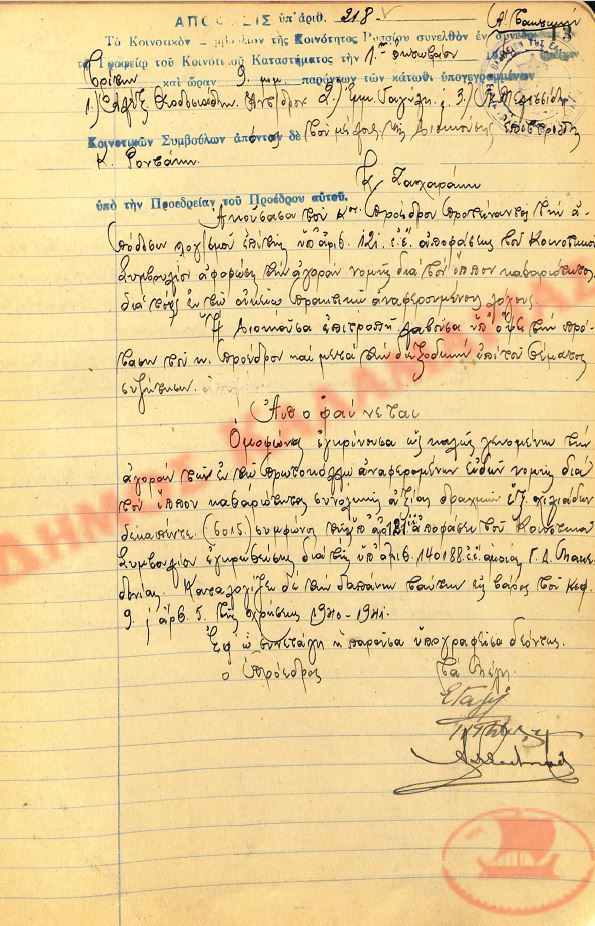 ΑΠΟΦΑΣΙΣ ὑπ' ἀριθ. 218
Τὸ Κοινοτικὸν Συμβούλιον τῆς Κοινότητος Ρυσσίου συνελθὸν ἐν συνεδρ
τῷ Γραφείῳ τοῦ Κοινοτικοῦ Καταστήματος τὴν 1ην
Τρίτην καὶ ὥραν 9 μ.μ. παρόντων τῶν κάτωθι ὑπογεγραμμένων
1) 2) Ἐμμ. 3)
Κοινοτικῶν Συμβούλων ἀπόντος δὲ τοῦ μέλους τῆς Διοικούσης Ἐπιτροπῆς
Κ.
Κ. Ζαχαράκη
ὑπὸ τὴν Προεδρείαν τοῦ Προέδρου αὐτοῦ.
Ἀκούσασα τοῦ κου Προέδρου προτείναντος τὴν ἀ-
πόδοσιν λογ/σμοῦ ἐπὶ τῆς ὑπ' ἀριθ. 121 ἐ.ἔ. ἀποφάσεως τοῦ Κοινοτικοῦ
Συμβουλίου ἀφορώσης τὴν ἀγορὰν νομῆς διὰ τὸν ἵππον καθαριότητος
διὰ τοὺς ἐν τῷ οἰκείῳ πρακτικῷ ἀναφερομένους λόγους.
Ἡ Διοικοῦσα ἐπιτροπὴ λαβοῦσα ὑπ' ὄψει τὴν πρό-
τασιν τοῦ κ. Προέδρου καὶ μετὰ τὴν διεξοδικὴν ἐπὶ τοῦ θέματος
συζήτησιν
Ἀποφαίνεται
Ὁμοφώνως ἐγκρίνουσα ὡς καλῶς γενομένην τὴν
ἀγορὰν τῶν ἐν τῷ πρωτοκόλλῳ ἀναφερομένων εἰδῶν νομῆς διὰ
τὸν ἵππον καθαριότητος συνολικῆς ἀξίας δραχμῶν ἕξ χιλιάδων
δεκαπέντε (6015) συμφώνως τῇ ὑπ' ἀρ. 121 ἐ.ἔ. ἀποφάσει τοῦ Κοινοτικοῦ
Συμβουλίου ἐγκριθείσης διὰ τῆς ὑπ' ἀριθ. 140188 ἐ.ἔ. ὁμοίας Γ.Δ. Μακε-
δονίας. Καταλογίζει δὲ τὴν δαπάνην ταύτην εἰς βάρος τοῦ Κεφ.
9 ἀρθ. 5 τῆς χρήσεως 1940-1941.
Ἐφ' ᾧ συνετάγη ἡ παροῦσα ὑπογραφεῖσα δεόντως.
ὁ Πρόεδρος Τὰ Μέλη
ΔΗΜΟΣ ΚΑΛΑΜΑΡΙΑΣ